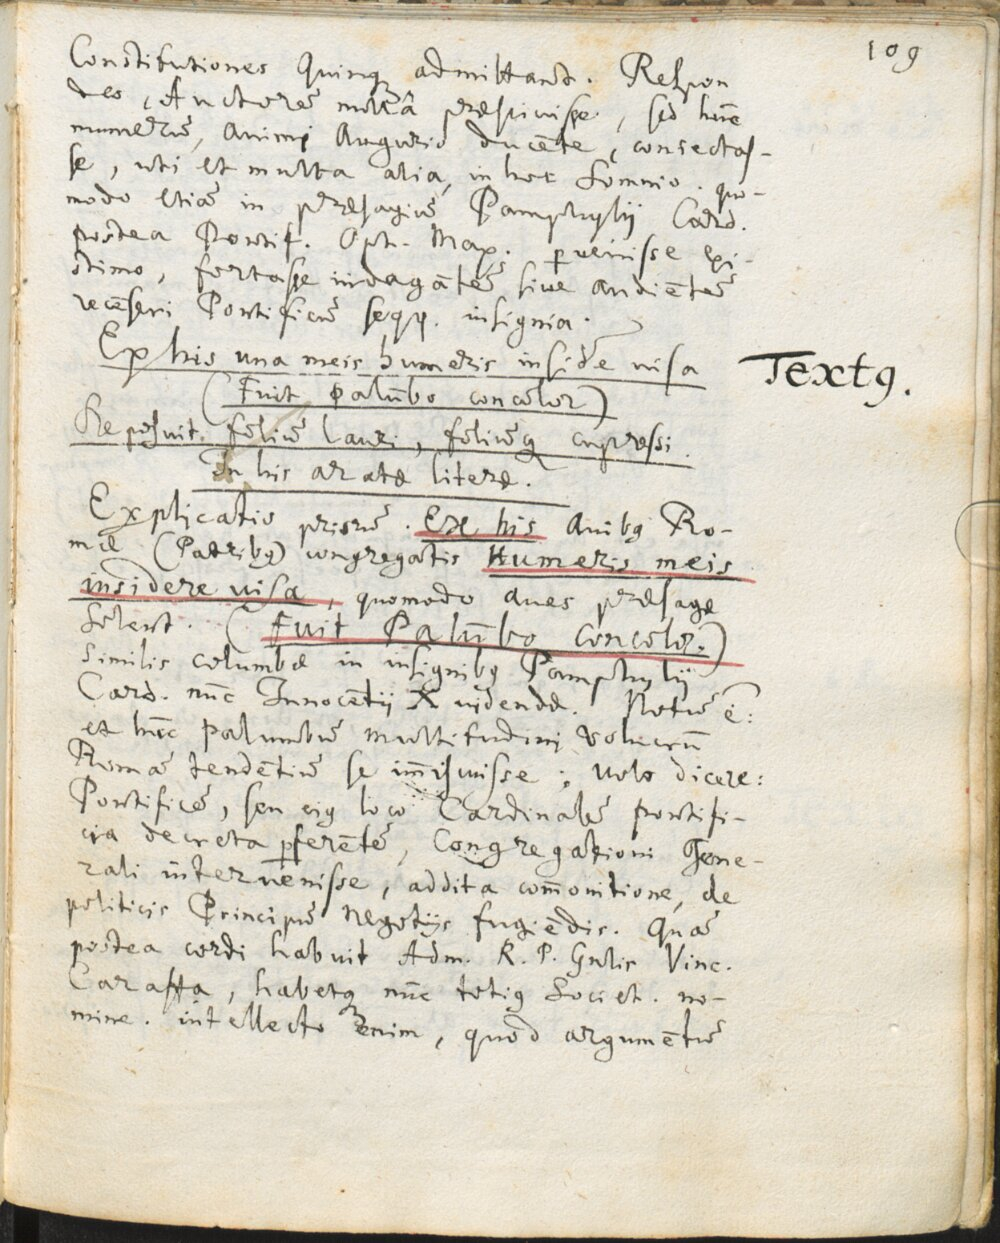 109
Constitutiones Quinq admittant. Respon
deo, Auctorē multâ præscivisse, sed hūc
numerū, animi Augurio ducēte, consectas-
se, uti et multa alia, in hoc Somnio. quo-
modo etiā in præsagiū Pamphylij Card.
postea Pontif. Opt. Max. pvenisse exi-
stimo, fortasse indagātē sive audiētē
recēseri Pontificū seqq. insignia.
Ex his una meis humeris insidēe visa
Textꝰ.
(Fuit palūbo concolor)
Reposuit foliū lauri, foliūq cupressi.
In his aratæ literæ.
Explicatio priorū. Ex his Avibꝰ Ro-
mæ (Patribꝰ) congregatis Humeris meis
insidere visa, quomodo aves præsagæ
solent. (Fuit Palūbo concolor.)
Similis columbæ in insignibꝰ Pamphylij
Card. nūc Innocētij X videndæ. Notū ē:
et hūc palumbū multitudini volucrū
Romā tendētiū se im̄iscuisse; volo dicere:
Pontificē, seu eiꝰ loco Cardinalē pontifi-
cia decreta pferētē, Congregationi Gene-
rali intervenisse, addita com̄onitione, de
politicis Principū Negotijs fugiēdis. Quā
postea cordi habuit Adm. R. P. Gnlis Vinc.
Caraffa, habetq nūc totiꝰ Societ. no-
mine. intellecto enim, quod argumētū